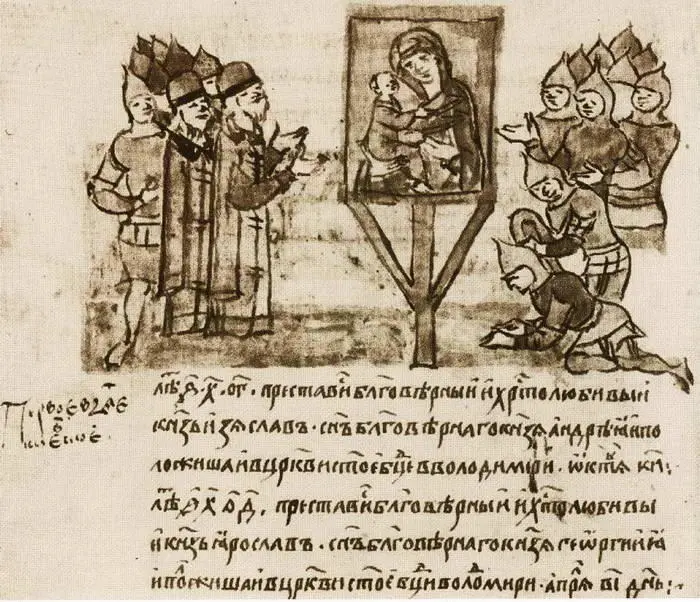 Первое взѧтїе
киевское
Лѣ҃ ҂ѕ҃.х҃.о҃г. преставис̑ бл҃говѣрныи и хрс̑толюбивыи
кн҃зь изѧславъ. сн҃ъ бл҃говѣрнаго кн҃зѧ андрѣѧ и по
ложиша и в цр҃кви ст҃ое бц҃и в володимѣри. ѡктѧ к҃и:
Лѣ҃ ҂ѕ҃ х҃ о҃д, преставис̑ бл҃говѣрныи и хрс̑толюбивы
и кн҃зь ѧрославъ. сн҃ъ бл҃говѣрнаго кн҃зѧ георгиѧ
и положиша и в цр҃кви ст҃ое бц҃и володимири. апрѧ в҃і дн҃ь: